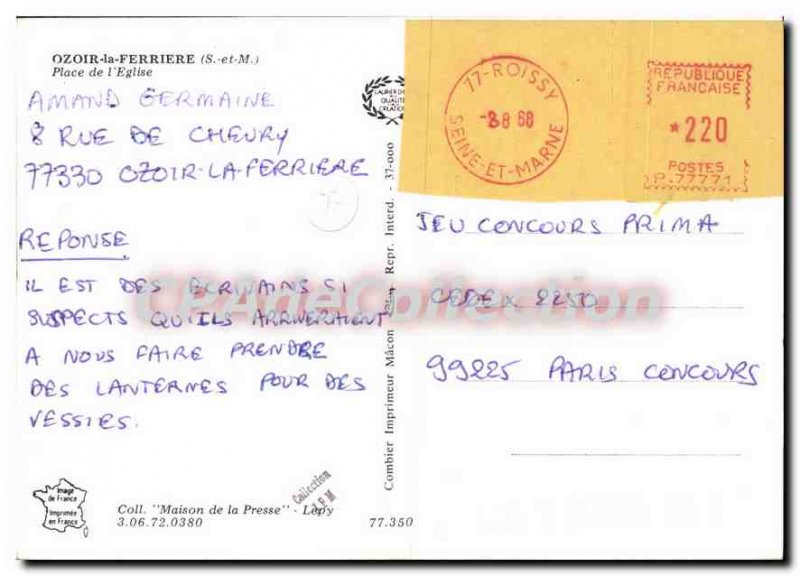 OZOIR-la-FERRIERE (S.-et-M.)
Place de l'Eglise
AMAND GERMAINE
8 RUE DE CHEVRY
77330 OZOIR-LA-FERRIERE
REPONSE
IL EST DES ECRIVAINS SI
SUSPECTS QU'ILS ARRIVERAIENT
A NOUS FAIRE PRENDRE
DES LANTERNES POUR DES
VESSIES.
Image
de France
Imprimée
en France
Coll. "Maison de la Presse" - Lépy
3.06.72.0380
77.350
Collection
Combier Imprimeur Mâcon
Repr. Interd. - 37-000
QUALITÉ
77-ROISSY
-8 8 88
SEINE-ET-MARNE
REPUBLIQUE
FRANCAISE
*220
POSTES
P.77771
JEU CONCOURS PRIMA
CEDEX 2250
99225 PARIS CONCOURS
CPArteCollection